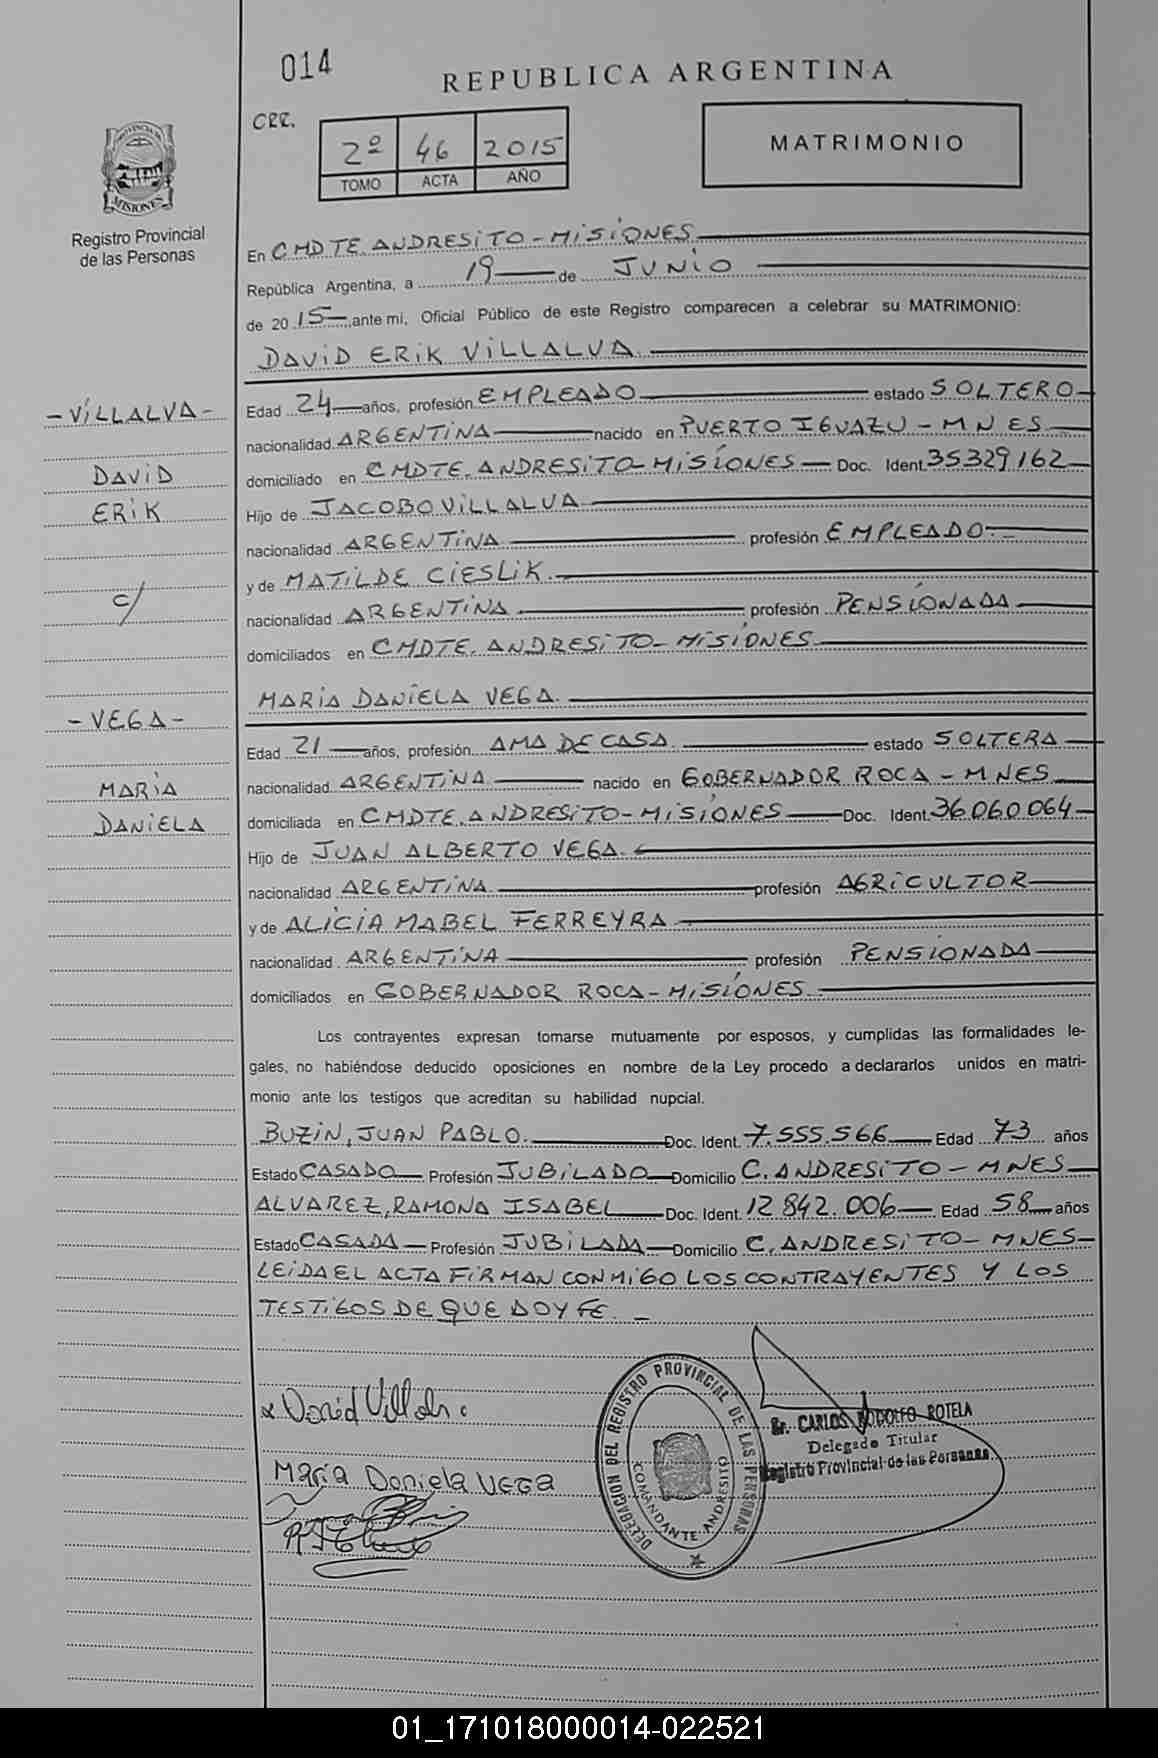 014
REPUBLICA ARGENTINA
CRR.
2º 46 2015
TOMO ACTA AÑO
MATRIMONIO
PROVINCIA DE
MISIONES
Registro Provincial
de las Personas
En CMDTE. ANDRESITO - MISIONES
República Argentina, a 19 de JUNIO
de 20 15 ,ante mi, Oficial Público de este Registro comparecen a celebrar su MATRIMONIO:
DAVID ERIK VILLALVA.
- VILLALVA - Edad 24 años, profesión EMPLEADO estado SOLTERO
nacionalidad ARGENTINA nacido en PUERTO IGUAZU - MNES
DAVID domiciliado en CMDTE. ANDRESITO - MISIONES Doc. Ident. 35329162
ERIK Hijo de JACOBO VILLALVA
nacionalidad ARGENTINA profesión EMPLEADO.-
c/ y de MATILDE CIESLIK.
nacionalidad ARGENTINA profesión PENSIONADA
domiciliados en CMDTE. ANDRESITO - MISIONES
MARIA DANIELA VEGA.
- VEGA - Edad 21 años, profesión AMA DE CASA. estado SOLTERA
MARIA nacionalidad ARGENTINA nacido en GOBERNADOR ROCA - MNES
DANIELA domiciliada en CMDTE. ANDRESITO - MISIONES Doc. Ident. 36060064
Hijo de JUAN ALBERTO VEGA.
nacionalidad ARGENTINA. profesión AGRICULTOR
y de ALICIA MABEL FERREYRA
nacionalidad ARGENTINA profesión PENSIONADA
domiciliados en GOBERNADOR ROCA - MISIONES.
Los contrayentes expresan tomarse mutuamente por esposos, y cumplidas las formalidades le-
gales, no habiéndose deducido oposiciones en nombre de la Ley procedo a declararlos unidos en matri-
monio ante los testigos que acreditan su habilidad nupcial.
BUZIN, JUAN PABLO. Doc. Ident. 7.555.566 Edad 73 años
Estado CASADO Profesión JUBILADO Domicilio C. ANDRESITO - MNES
ALVAREZ, RAMONA ISABEL Doc. Ident. 12.842.006 Edad 58 años
Estado CASADA Profesión JUBILADA Domicilio C. ANDRESITO - MNES
LEIDA EL ACTA FIRMAN CONMIGO LOS CONTRAYENTES Y LOS
TESTIGOS DE QUE DOY FE. -
David Villalva
Maria Daniela VEGA
DELEGACION DEL REGISTRO PROVINCIAL DE LAS PERSONAS
COMANDANTE ANDRESITO
Sr. CARLOS RODOLFO ROTELA
Delegado Titular
Registro Provincial de las Personas
01_171018000014-022521